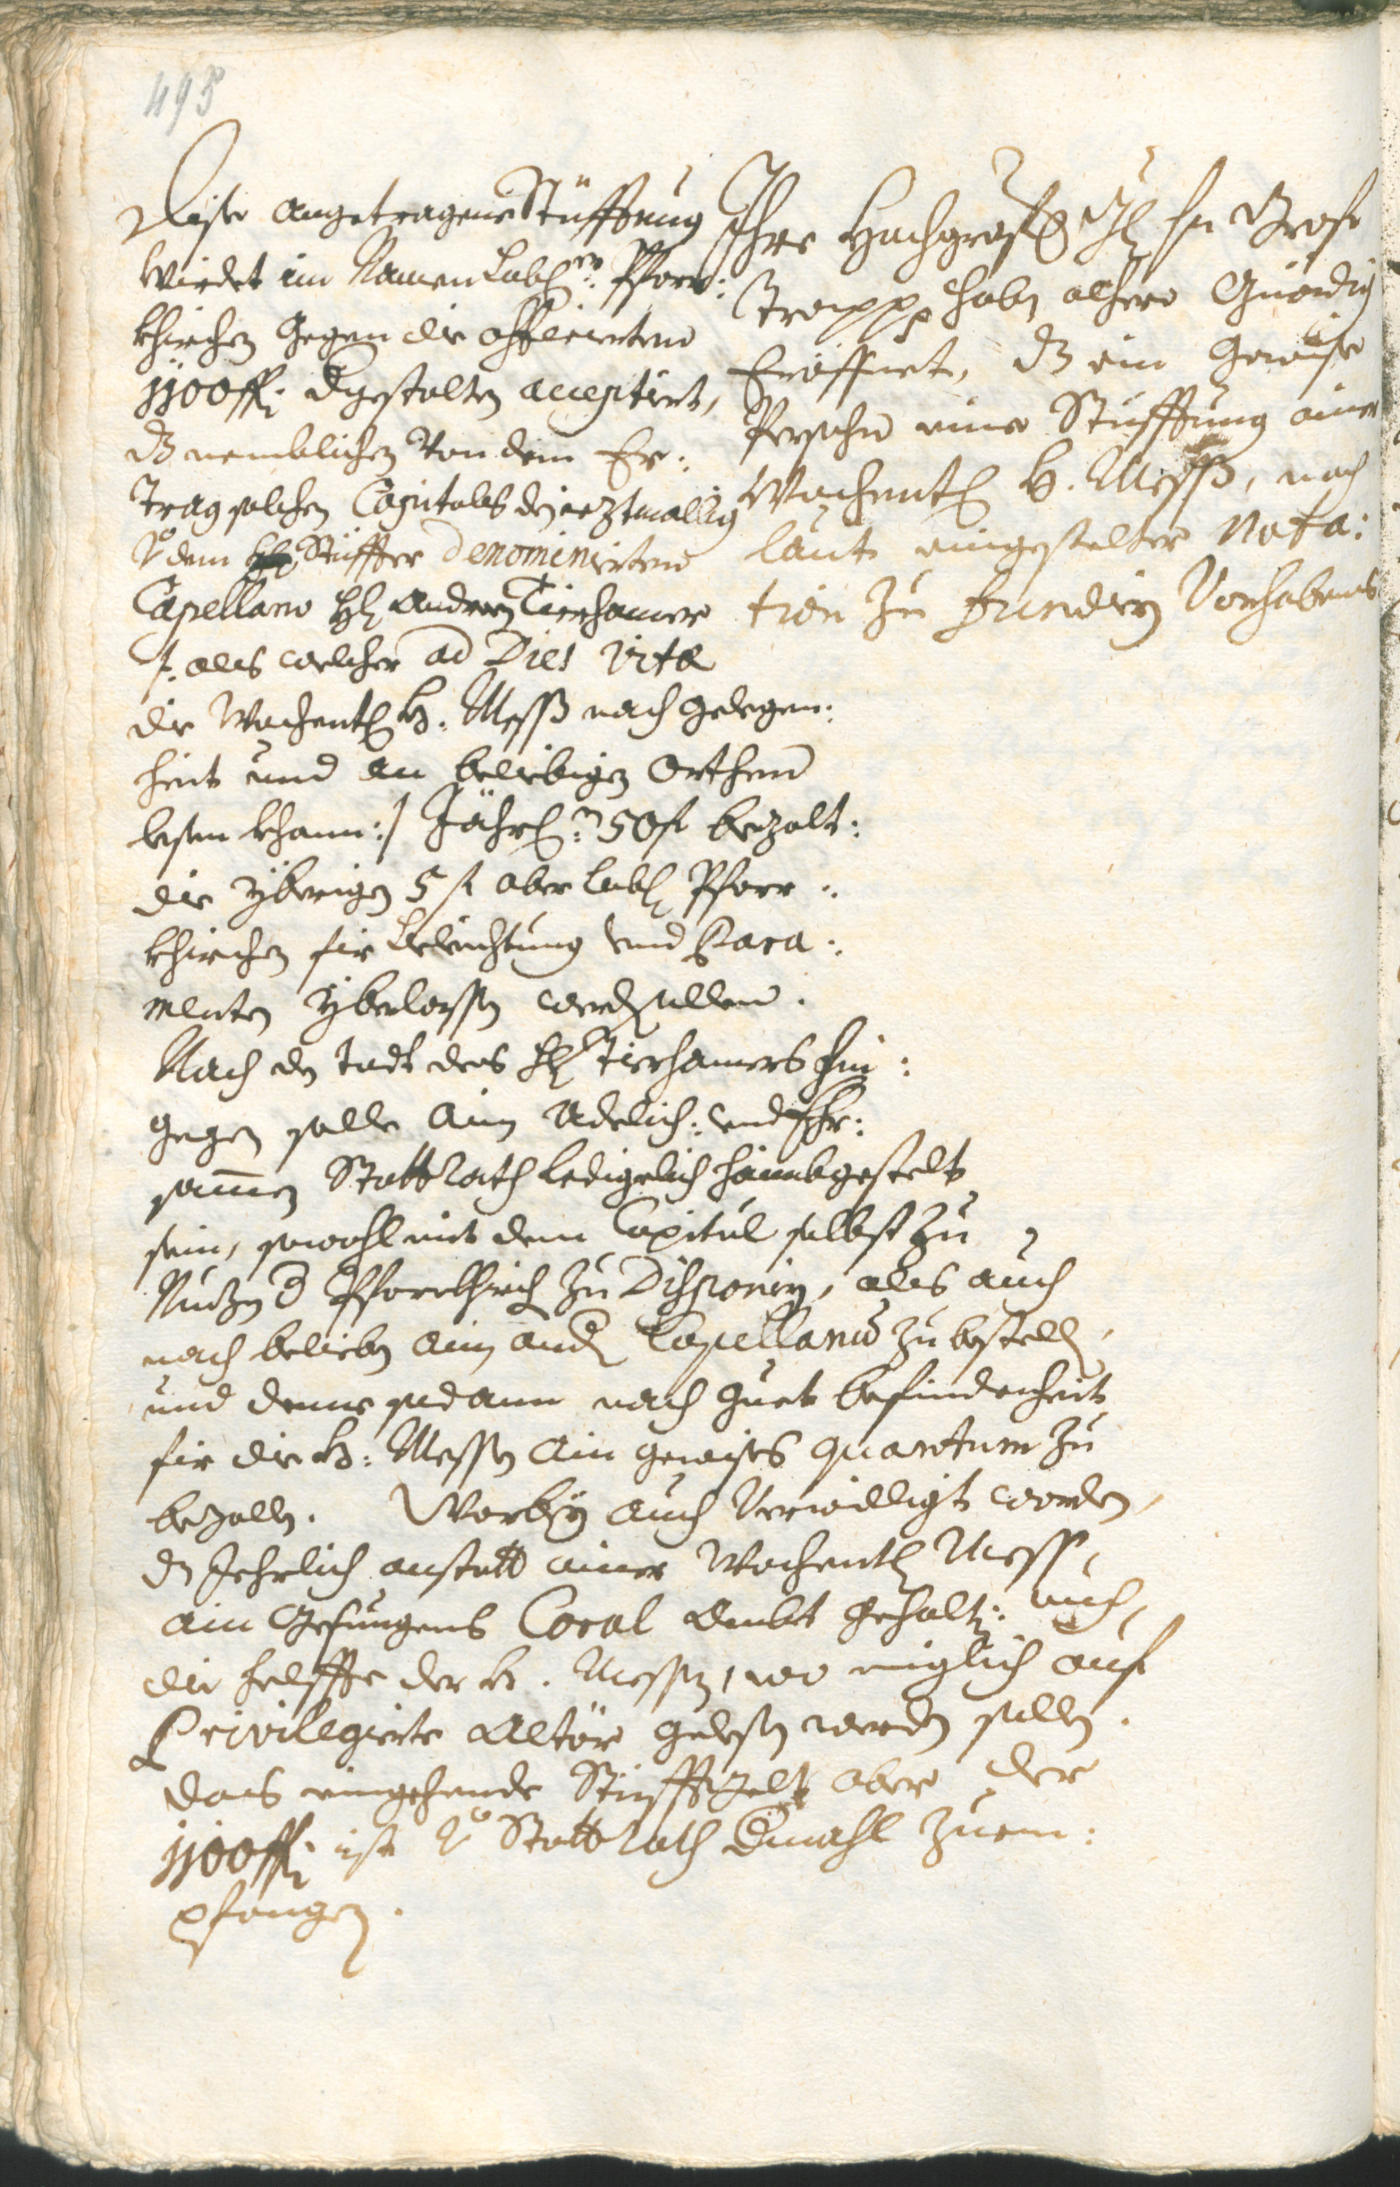 495
Dise angetragene Stüfftung
würdet im Namen Lobl: Pfarr:
khirchen gegen die offerierten
1100 fl: dergestalten acceptiert,
dz nemblichen von dem Er:
trag solchen Capitals dem ieztmallig
von dem Stüffter denominierten
Capellano Hl: Andreen Tirrhamer
/: als welcher ad dies vitæ
die wochentl: h: Mess nach gelegen:
heit und an beliebigen Orthen
lesen khann :/ Jährl: 50 fl bezalt:
die yberigen 5 fl aber lobl: Pfarr:
khirchen für beleichtung und Para:
menten yberlassen werden sollen.
Nach dem Todt des Hl: Tirrhamers hin:
gegen solle ainem Adelich: und Ehr:
samen Stattrath ledigelich haimbgestelt
sein, sowohl mit dem Capital selbst zu
Nuzen der Pfarrkhirch zu disponiern, als auch
nach belieben ainen andern Capellanum zu bestellen,
und deme sodann nach guet befindenheit
für die h: Messen ain gewises quantum zu
bezallen. Worbey auch verwilligt worden,
dz Jehrlich anstatt ainer wochentl: Mess,
ain gesungenes Coral Ambt gehalten: auch
die helffte der h: Messen, wo miglich auf
Privilegierte Altär gelesen werden sollen.
das eingehende Stüfftgelt aber der
1100 fl: ist von Stattrath Einmahl zuem:
pfangen.
Ihro Hochgräfl: Hl: Graf
Trappp haben alhero Gnädig
Eröffnet, dz ein gewise
Persohn eine Stüfftung ainer
Wochentl: h: Mess, nach
lauth eingestelter Nota:
tion zu fundiern Vorhabens